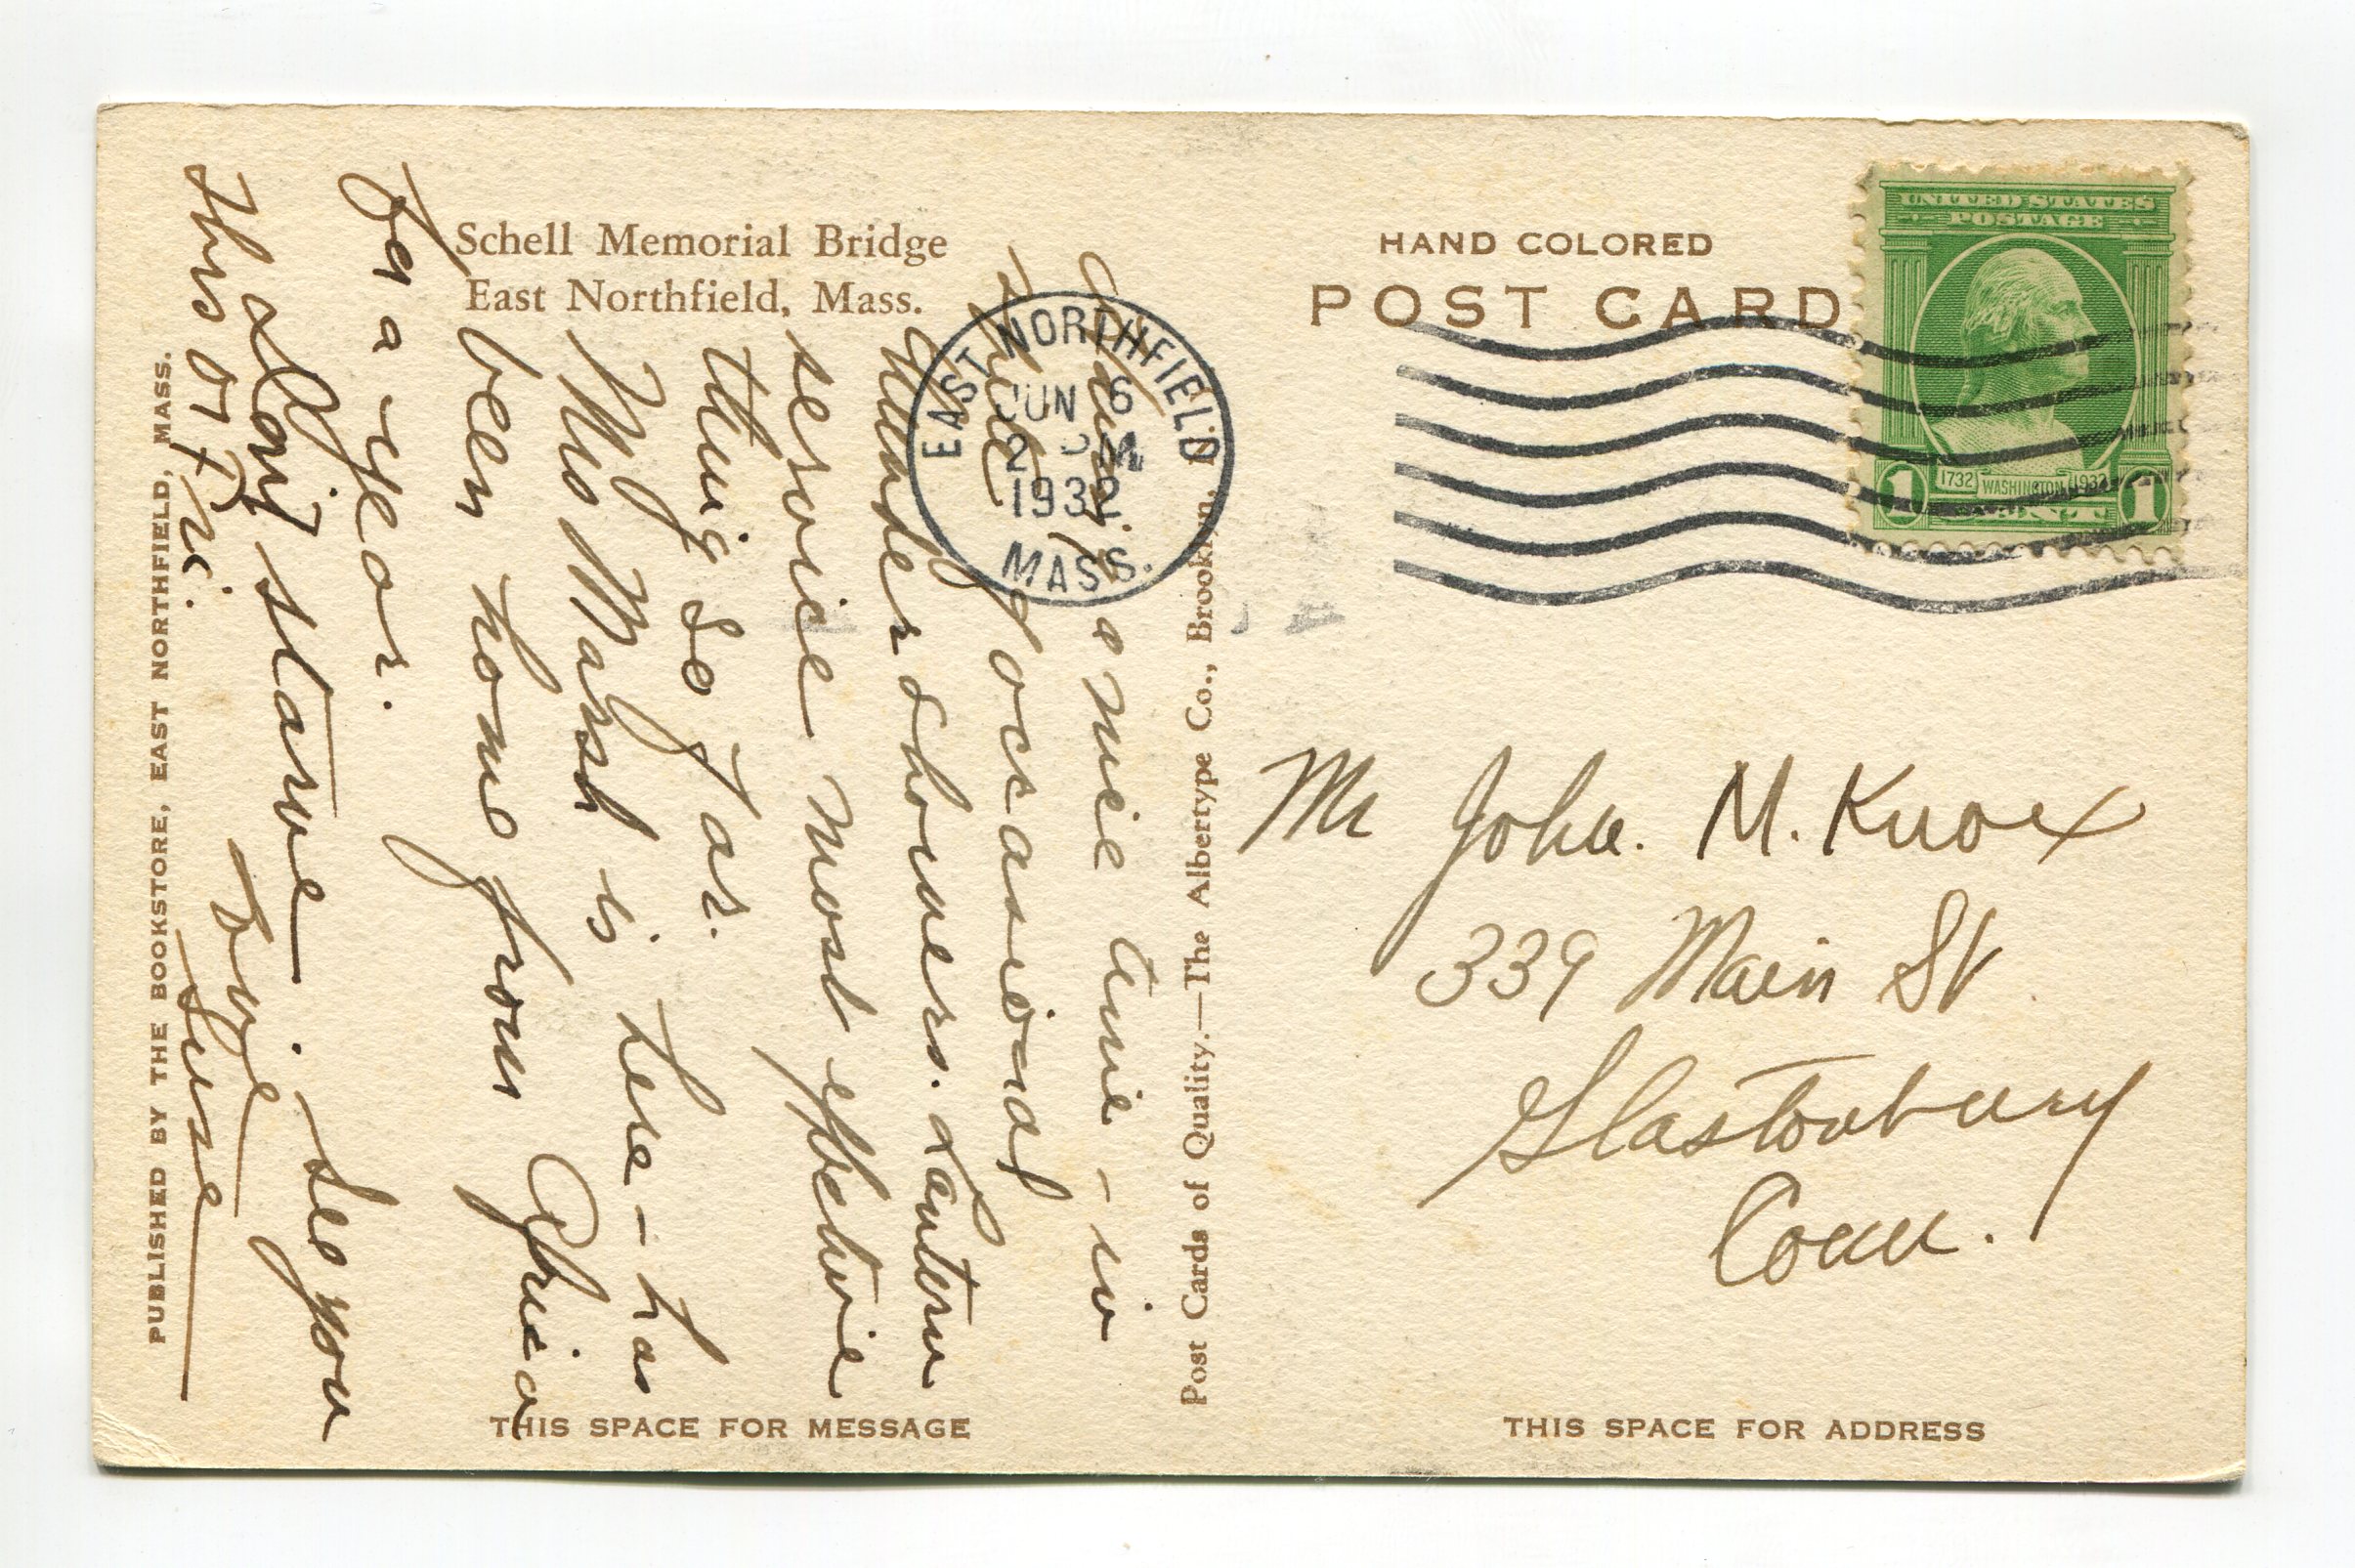 Schell Memorial Bridge
East Northfield, Mass.
HAND COLORED
POST CARD
UNITED STATES
POSTAGE
1732 WASHINGTON 1932
1 CENT 1
EAST NORTHFIELD
JUN 6
2 PM
1932
MASS.
Having a nice time - in
spite of occasional
thunder showers. Lantern
service most effective
thing so far.
Mrs Marsh is here - has
been home from Africa
for a year.
slowly starve. See you
this
Love
Post Cards of Quality.—The Albertype Co., Brooklyn, N.
PUBLISHED BY THE BOOKSTORE, EAST NORTHFIELD, MASS.
Mr John M. Knox
339 Main St
Glastonbury
Conn.
THIS SPACE FOR MESSAGE
THIS SPACE FOR ADDRESS